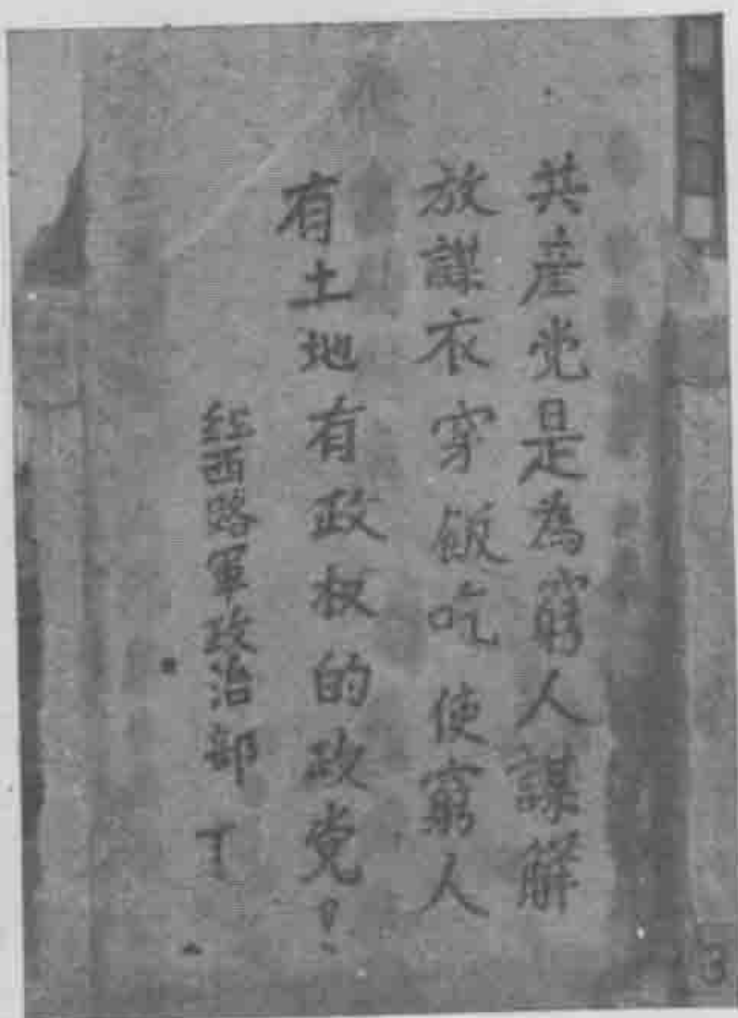 共产党是為窮人謀解
放謀衣穿飯吃使窮人
有土地有政权的政党!
红西路軍政治部
3